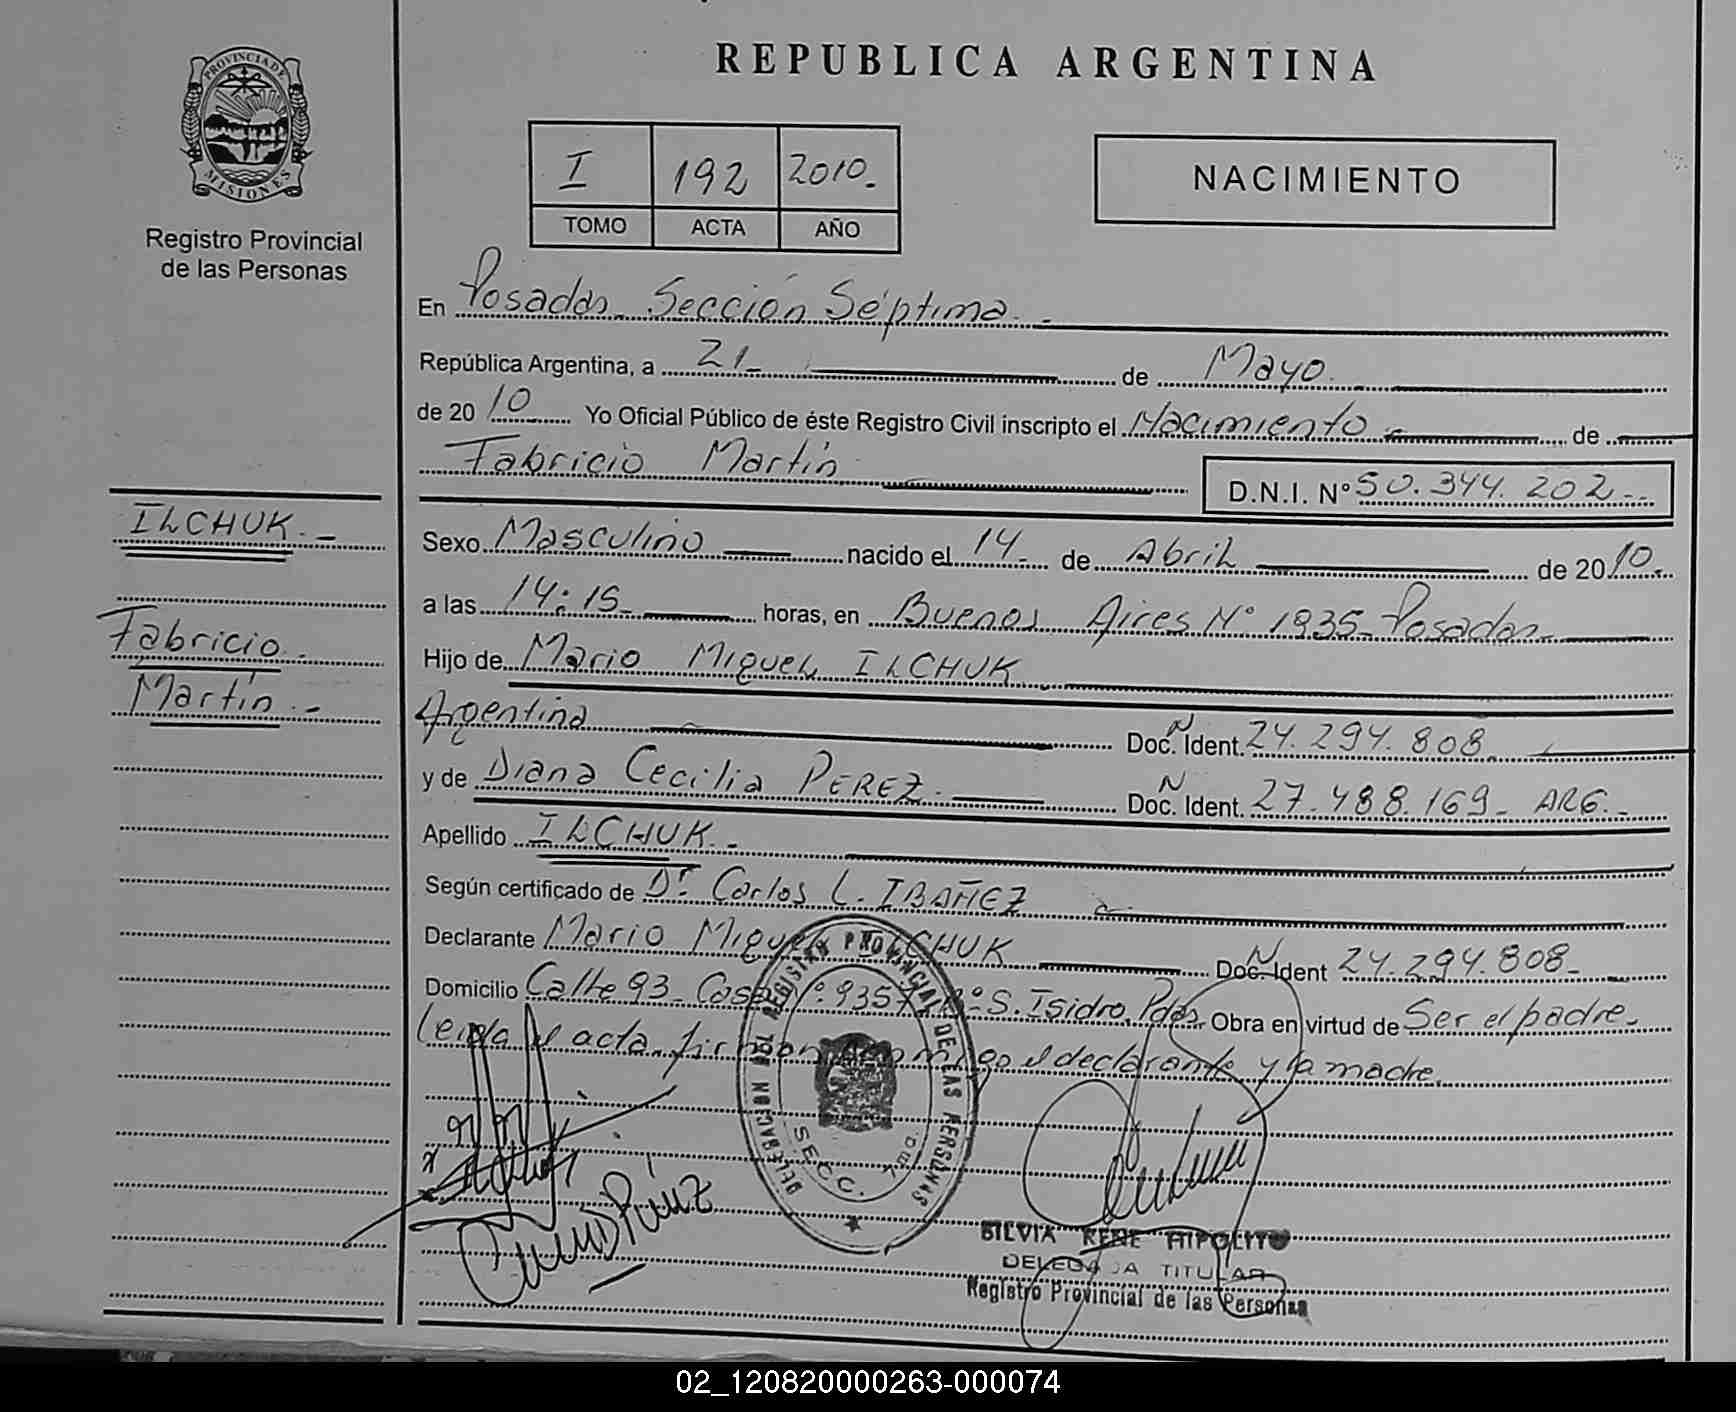 PROVINCIA DE
MISIONES
Registro Provincial
de las Personas
REPUBLICA ARGENTINA
I 192 2010.-
TOMO ACTA AÑO
NACIMIENTO
En Posadas Sección Séptima.-
República Argentina, a 21- de Mayo.
de 20 10 Yo Oficial Público de éste Registro Civil inscripto el Nacimiento de
Fabricio Martín D.N.I. N° 50.344.202--
ILCHUK.-
Sexo Masculino nacido el 14 de Abril de 20 10.
a las 14:15- horas, en Buenos Aires N° 1935- Posadas-
Fabricio-
Hijo de Mario Miguel ILCHUK
Martín.-
Argentina Doc. Ident. 24.294.808
y de Diana Cecilia PEREZ.- Doc. Ident. 27.488.169- ARG.-
Apellido ILCHUK.-
Según certificado de Dr. Carlos L. IBAÑEZ
Declarante Mario Miguel ILCHUK Doc. Ident 24.294.808-
Domicilio Calle 93- Casa N°. 9357 B° S. Isidro, Pdas. Obra en virtud de Ser el padre.
Leida el acta, firman conmigo el declarante y la madre.
DELEGACION DEL REGISTRO PROVINCIAL DE LAS PERSONAS
SECC. 7ma
SILVIA RENE HIPOLITO
DELEGADA TITULAR
Registro Provincial de las Personas
02_120820000263-000074